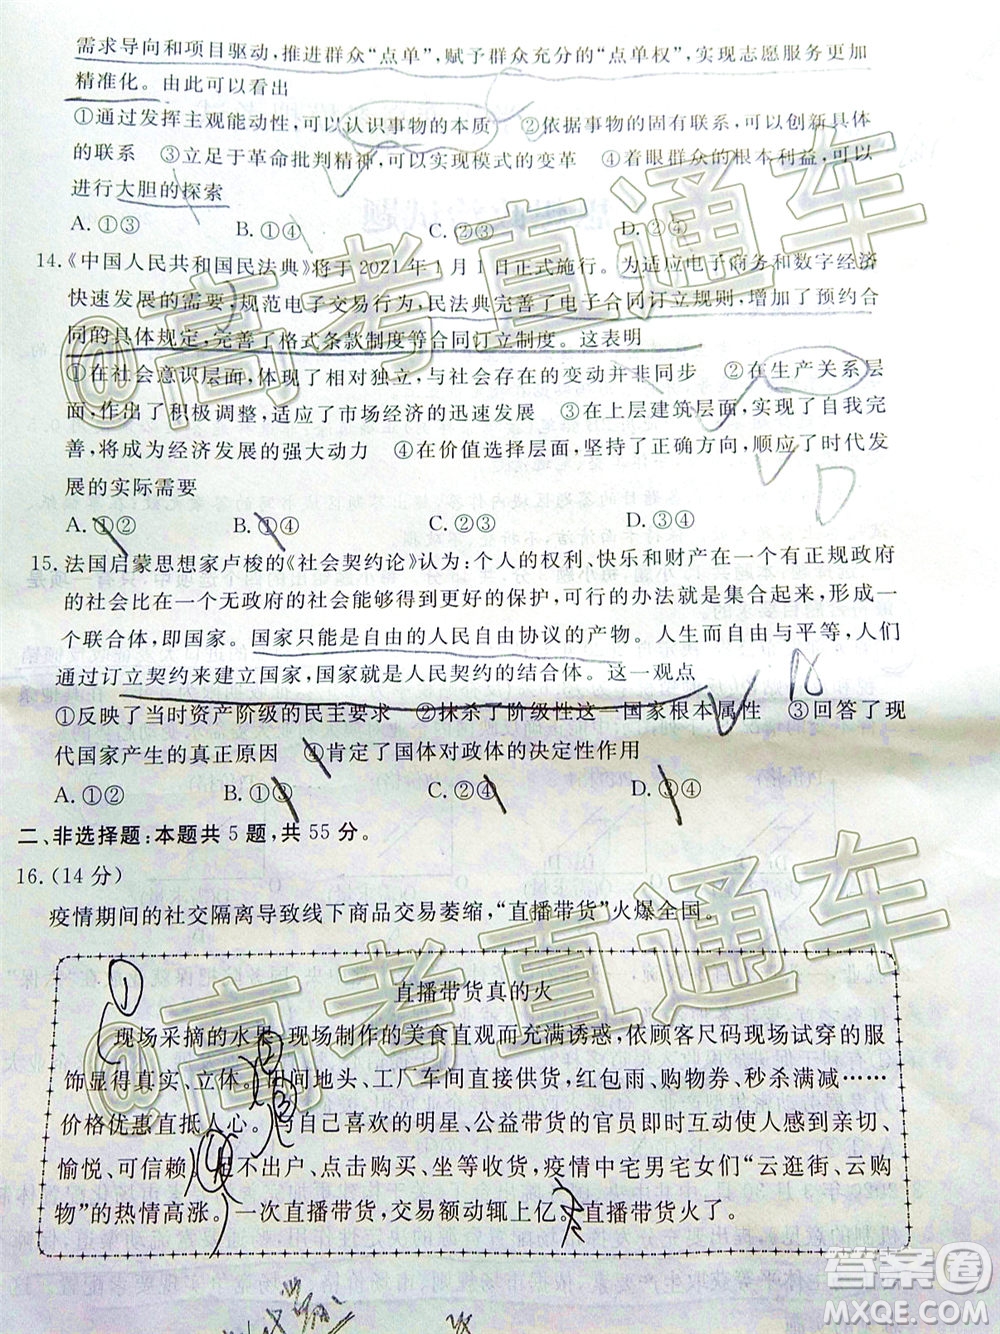 需求导向和项目驱动,推进群众“点单”,赋予群众充分的“点单权”,实现志愿服务更加
精准化。由此可以看出
①通过发挥主观能动性,可以认识事物的本质　②依据事物的固有联系,可以创新具体
的联系　③立足于革命批判精神,可以实现模式的变革　④着眼群众的根本利益,可以
进行大胆的探索
A.①③　B.①④　C.②③　D.②④
14.《中国人民共和国民法典》将于2021年1月1日正式施行。为适应电子商务和数字经济
快速发展的需要,规范电子交易行为,民法典完善了电子合同订立规则,增加了预约合
同的具体规定,完善了格式条款制度等合同订立制度。这表明
①在社会意识层面,体现了相对独立,与社会存在的变动并非同步　②在生产关系层
面,作出了积极调整,适应了市场经济的迅速发展　③在上层建筑层面,实现了自我完
善,将成为经济发展的强大动力　④在价值选择层面,坚持了正确方向,顺应了时代发
展的实际需要
A.①②　B.①④　C.②③　D.③④
15.法国启蒙思想家卢梭的《社会契约论》认为:个人的权利、快乐和财产在一个有正规政府
的社会比在一个无政府的社会能够得到更好的保护,可行的办法就是集合起来,形成一
个联合体,即国家。国家只能是自由的人民自由协议的产物。人生而自由与平等,人们
通过订立契约来建立国家,国家就是人民契约的结合体。这一观点
①反映了当时资产阶级的民主要求　②抹杀了阶级性这一国家根本属性　③回答了现
代国家产生的真正原因　④肯定了国体对政体的决定性作用
A.①②　B.①③　C.②④　D.③④
二、非选择题:本题共5题,共55分。
16.(14分)
疫情期间的社交隔离导致线下商品交易萎缩,“直播带货”火爆全国。
直播带货真的火
现场采摘的水果、现场制作的美食直观而充满诱惑,依顾客尺码现场试穿的服
饰显得真实、立体。田间地头、工厂车间直接供货,红包雨、购物券、秒杀满减……
价格优惠直抵人心。与自己喜欢的明星、公益带货的官员即时互动使人感到亲切、
愉悦、可信赖。足不出户、点击购买、坐等收货,疫情中宅男宅女们“云逛街、云购
物”的热情高涨。一次直播带货,交易额动辄上亿,直播带货火了。
@高考直通车
@高考直通车
答案圈
MXQE.COM